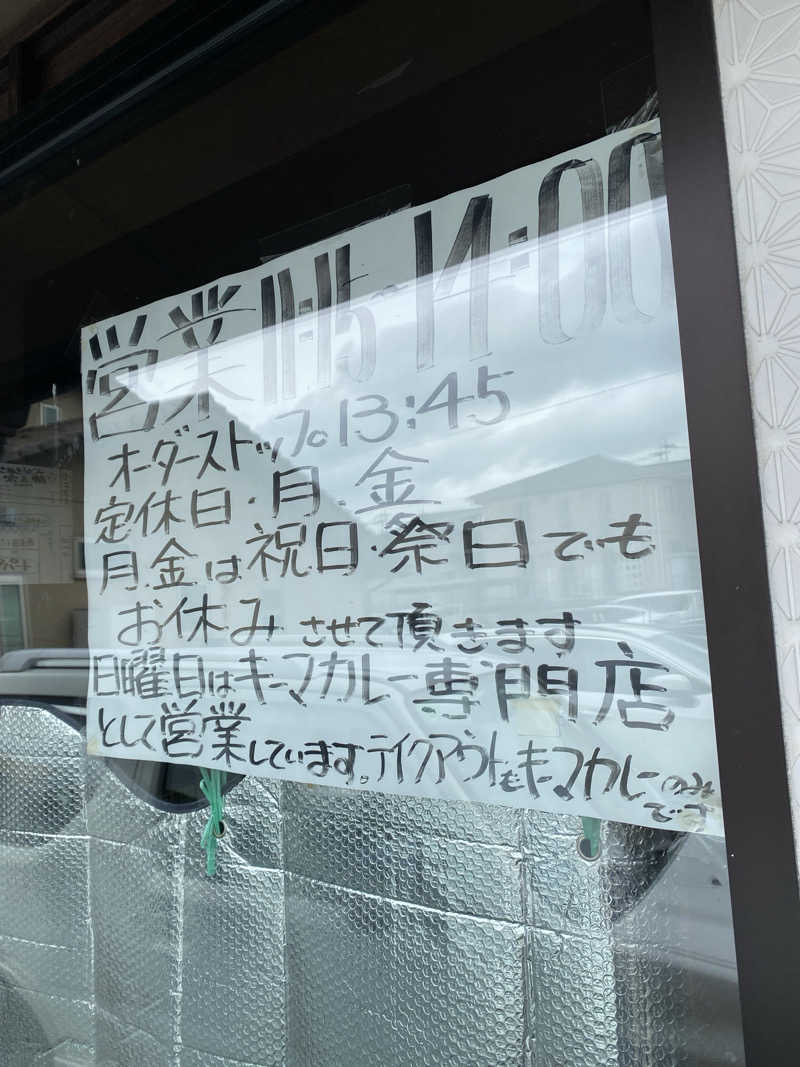 営業 11:15~14:00
オーダーストップ。13:45
定休日・月・金
月.金は祝日・祭日でも
お休みさせて頂きます
日曜日はキーマカレー専門店
として営業しています。テイクアウトもキーマカレーのみ
です